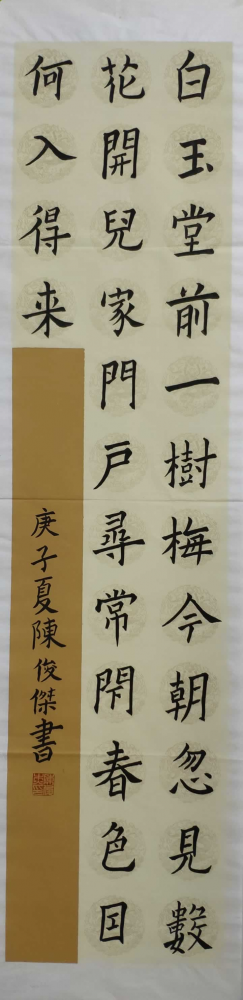 白玉堂前一樹梅今朝忽見數
花開兒家門戸尋常閇春色囙
何入得来
庚子夏陳俊傑書